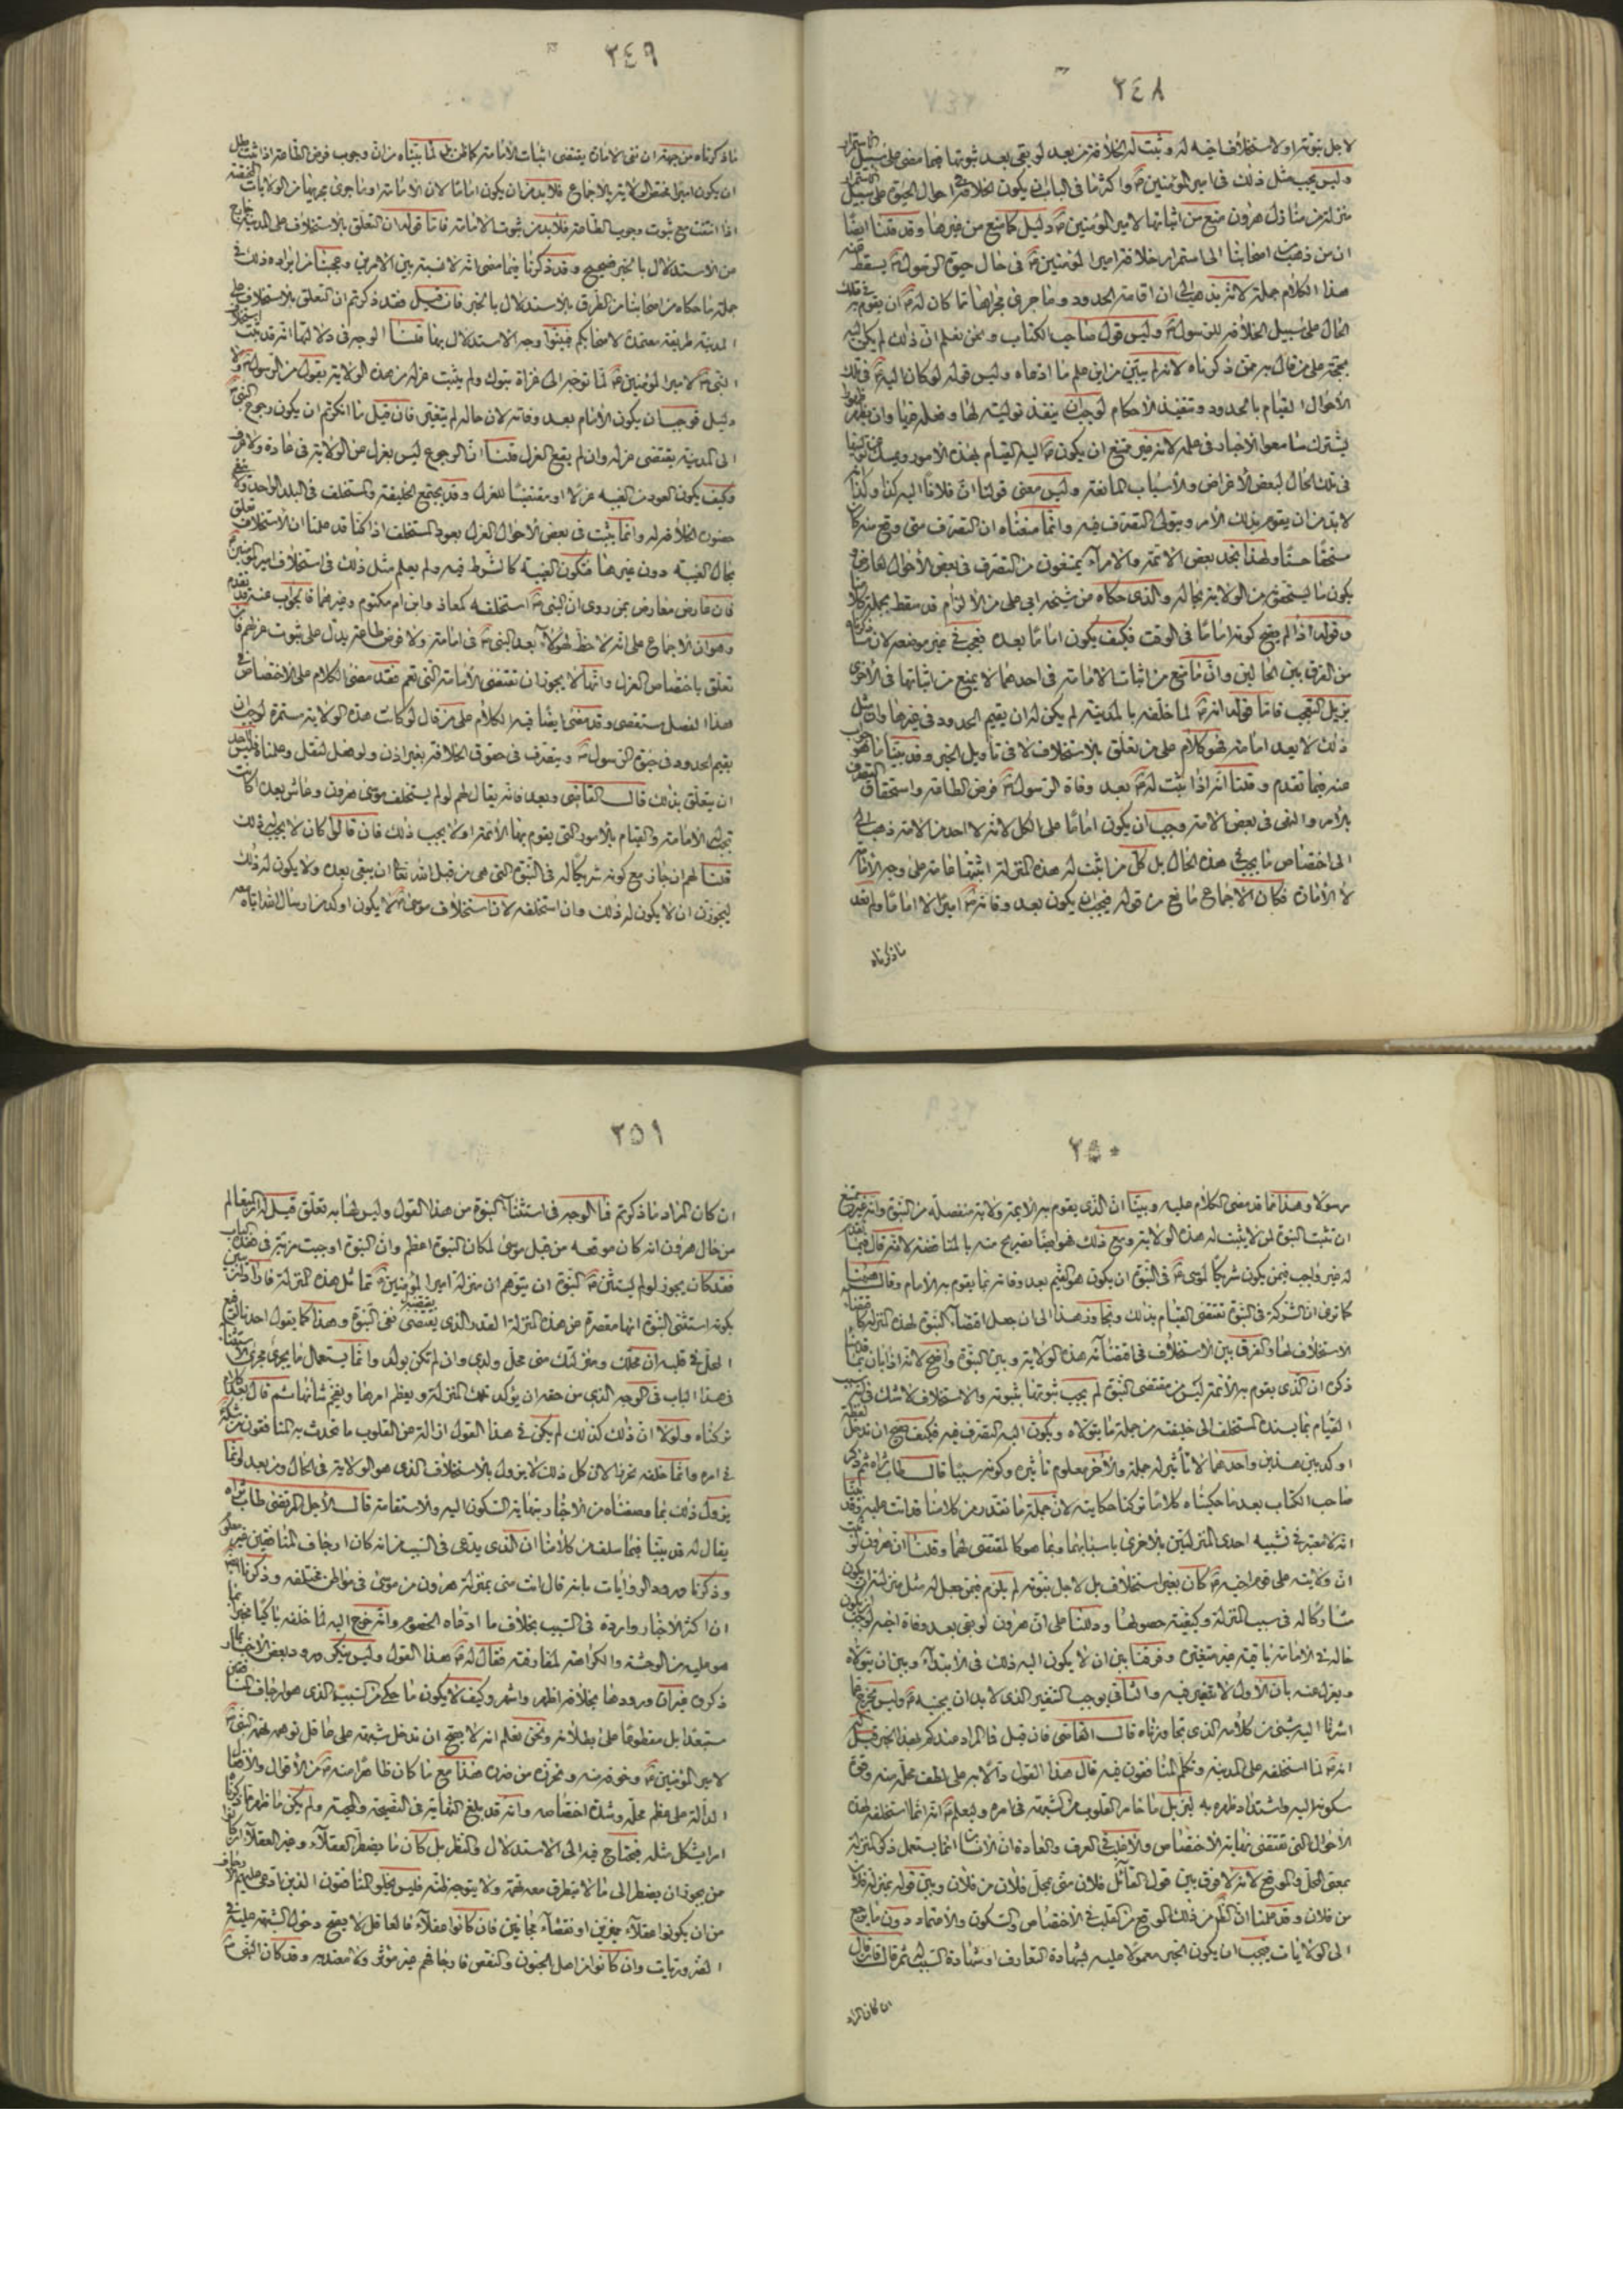 ٢٤٨
لاجل نبوته او لاستخلاف اخيه له وثبت له الخلافة من بعد لو بقى بعد ثبوتها فيما مضى على سبيل الاستمرار
وليس يجب مثل ذلك فى امير المؤمنين واكثر ما فى الباب ان يكون الخلافة فى احوال الحيوة على سبيل الاستمرار
منزلة من منازل هرون منع من اثباتها لامير المؤمنين دليل كما منع من غيرها وقد قلنا ايضا
ان من ذهب من اصحابنا الى استمرار خلافة امير المؤمنين فى حال حيوة الرسول يسقط عنه
هذا الكلام جملة لانه يذهب الى ان اقامة الحدود وما جرى مجراها مما كان له ان يقوم به فى تلك
الحال على سبيل الخلافة للرسول وليس قول صاحب الكتاب ونحن نعلم ان ذلك لم يكن اليه
بحجة على من قال به ممن ذكرناه لانه لم يبين من اين علم ما ادعاه وليس قوله لو كان اليه فى تلك
الاحوال القيام بالحدود وتنفيذ الاحكام لوجب ان ينفذ توليته لها وفعله فيها وان
يشترك سامعوا الاخبار فى علمه لانه غير ممتنع ان يكون اليه القيام بهذه الامور ويمسك عن توليها
فى تلك الحال لبعض الاغراض والاسباب المانعة وليس معنى قولنا ان فلانا اليه كذا وكذا انه
لا بد من ان يقوم بذلك الامر ويتولى التصرف فيه وانما معناه ان التصرف متى وقع منه كان
مستحقا حسنا ولهذا نجد بعض الائمة والامراء يمتنعون من التصرف فى بعض الاحوال لعارض و
يكون ما يستحق من الولاية بحاله والذى حكاه من شيخه ابى على من الالزام قد سقط بجملة كلامنا
وقوله اذا لم يصح كونه اماما فى الوقت فكيف يكون اماما بعده فعجب فى غير موضعه لان ما ذكرناه
من الفرق بين الحالين وان ما منع من اثبات الامامة فى احدهما لا يمنع من اثباتها فى الاخرى
يزيل التعجب فاما قوله انه لما خلفه بالمدينة لم يكن له ان يقيم الحدود فى غيرها وان مثل
ذلك لا يعد امامة فهو كلام على من تعلق بالاستخلاف لا فى تاويل الخبر وقد بينا ما هو جواب
عنه فيما تقدم وقلنا انه اذا ثبت له بعد وفاة الرسول فرض الطاعة واستحقاق التصرف
بالامر والنهى فى بعض الامة وجب ان يكون اماما على الكل لانه لا احد من الامة ذهب
الى اختصاص ما يجب فى هذه الحال بل كل من اثبت له هذه المنزلة اثبتها عامة على وجه الامامة
لا الامارة فكان الاجماع مانع من قوله فيجب ان يكون بعد وفاته اميرا لا اماما ولم نقد
ما ذكرناه
٢٤٩
ما ذكرناه من جهة ان نفى الامارة يقتضى اثبات الامامة كما ظن بل لما بيناه من ان وجوب فرض الطاعة اذا ثبت وبطل
ان يكون اميرا مختص الولاية بالاجماع فلا بد من ان يكون اماما لان الامامة او ما جرى مجريها من الولايات المختصة
اذا انتفت مع ثبوت وجوب الطاعة فلا بد من ثبوت الامامة فاما قوله ان التعلق بالاستخلاف على المدينة خارج
من الاستدلال بالخبر فصحيح وقد ذكرنا فيما مضى انه لا نسبة بين الامرين وعجبنا من ايراده ذلك فى
جملة ما حكاه من اصحابنا من الطرق بالاستدلال بالخبر فان قيل فقد ذكرتم ان التعلق بالاستخلاف على
المدينة طريقة معتمدة لاصحابكم فبينوا وجه الاستدلال بها قلنا الوجه فى دلالتها انه قد ثبت استخلاف
النبى لامير المؤمنين لما توجه الى غزاة تبوك ولم يثبت عزله من هذه الولاية بقول من الرسول ولا
دليل فوجب ان يكون الامام بعد وفاته لان حاله لم يتغير فان قيل ما انكرتم ان يكون رجوع النبى
الى المدينة يقتضى عزله وان لم يقع العزل قلنا ان الرجوع ليس بعزل عن الولاية فى عادة ولا عرف
وكيف يكون العود من الغيبة عزلا او مقتضيا للعزل وقد يجتمع الخليفة والمستخلف فى البلد الواحد ولا ينفى
حضوره الخلافة له وانما يثبت فى بعض الاحوال العزل بعود المستخلف اذا كنا قد علمنا ان الاستخلاف تعلق
بحال الغيبة دون غيرها فتكون الغيبة كالشرط فيه ولم يعلم مثل ذلك فى استخلاف امير المؤمنين
فان عارض معارض بمن روى ان النبى استخلفه كمعاذ وابن ام مكتوم وغيرهما فالجواب عنه قد تقدم
وهو ان الاجماع على انه لا حظ لهؤلاء بعد النبى فى امامة ولا فرض طاعة يدل على ثبوت عزلهم فان
تعلق باختصاص العزل وانها لا يجوز ان تقتضى الامامة التى تعم فقد مضى الكلام على الاختصاص فى
هذا الفصل مستقصى وقد مضى ايضا فيه الكلام على من قال لو كانت هذه الولاية مستمرة لوجب ان
يقيم الحدود فى حيوة الرسول ويتصرف فى حقوق الخلافة بغير اذن ولو فعل لنقل وعلمناه فليس لاحد
ان يتعلق بذلك قال القاضى وبعد فانه يقال لهم لو لم يستخلف موسى هرون وعاش بعده اكانت
تجب له الامامة والقيام بالامور التى يقوم بها الائمة او لا يجب ذلك فان قالوا كان لا يجب له ذلك
قلنا لهم ان جاز مع كونه شريكا له فى النبوة التى هى من قبل الله تعالى ان يبقى بعده ولا يكون له ذلك
ليجوزن ان لا يكون له ذلك وان استخلفه لان استخلاف موسى لا يكون اوكد من ارسال الله اياه معه
٢٥٠
رسولا وهذا مما قد مضى الكلام عليه وبينا ان الذى يقوم به الائمة ولاية منفصلة من النبوة وانه غير ممتنع
ان تثبت النبوة لمن لا يثبت له هذه الولاية ومع ذلك فهو ايضا تصريح منه بالمناقضة لانه قال فيما تقدم
انه غير واجب فيمن يكون شريكا لموسى فى النبوة ان يكون هو القيم بعد وفاته بما يقوم به الامام وقال هيهنا
كما ترى ان الشركة فى النبوة تقتضى القيام بذلك وتجاوز هذا الى ان جعل اقتضاء النبوة لهذه المنزلة كاقتضاء
الاستخلاف لها والفرق بين الاستخلاف فى اقتضائه هذه الولاية وبين النبوة واضح لانه اذا بان بما قدمنا
ذكره ان الذى يقوم به الائمة ليس من مقتضى النبوة لم يجب ثبوتها بثبوته والاستخلاف لا شك فى انه سبب
القيام بما يسنده المستخلف الى خليفته من جملة ما يتولاه ويكون اليه التصرف فيه فكيف يصح ان تدخل لفظة
اوكد بين هذين واحدهما لا تأثير له جملة والاخر معلوم تاثيره وكونه سببا قال طاب ثراه ثم ذكر
صاحب الكتاب بعد ما حكيناه كلاما تركنا حكايته لان جملة ما تقدم من كلامنا قد اتت عليه وقد بينا
انه لا معتبر فى تشبيه احدى المنزلتين بالاخرى باسبابهما وبما هو كالمقتضى لهما وقلنا ان هرون لو ثبت
ان ولايته على قوم اخيه كان بغير استخلاف بل لاجل نبوته لم يلزم فيمن جعل له مثل منزلته ان يكون
مشاركا له فى سبب المنزلة وكيفية حصولها ودللنا على ان هرون لو بقى بعد وفاة اخيه لوجب ان يكون
حاله فى الامامة باقية غير متغيرة وفرقنا بين ان لا يكون اليه ذلك فى الابتداء وبين ان يتولاه
ويعزل عنه بان الاول لا تنفير فيه والثانى يوجب التنفير الذى لا بد ان يجنبه وليس يخرج عما
اشرنا اليه شئ من كلامه الذى تجاوزناه قال القاضى فان قيل فما المراد عندكم بهذا الخبر قيل له
انه لما استخلفه على المدينة وتكلم المنافقون فيه قال هذا القول دالا به على لطف محله منه وقوة
سكونه اليه واشتداد ظهره به ليزيل ما خامر القلوب من الشبهة فى امره وليعلم انه انما استخلفه لهذه
الاحوال التى تقتضى نهاية الاختصاص والاغلب فى العرف والعادة ان الانسان انما يستعمل ذكر المنزلة
بمعنى المحل والموقع لانه لا فرق بين قول القائل فلان منى بمحل فلان من فلان وبين قوله بمنزلة فلان
من فلان وقد علمنا ان الظاهر من ذلك الموقع من القلب فى الاختصاص والسكون والاعتماد دون ما يرجع
الى الولايات فيجب ان يكون الخبر محمولا عليه بشهادة التعارف او شهادة السبب له ثم قال فان قال
ان كان المراد
٢٥١
ان كان المراد ما ذكرتم فما الوجه فى استثناء النبوة من هذا القول وليس لها به تعلق قيل له انه لما علم
من حال هرون انه كان موقعه من قلب موسى لمكان النبوة اعظم وان النبوة اوجبت مزية فى هذا الباب
فقد كان يجوز لو لم يستثن النبوة ان يتوهم ان منزلة امير المؤمنين تماثل هذه المنزلة فاراد ان يبين
بكونه استثنى النبوة انها مقصرة عن هذه المنزلة القدر الذى يقتضيه نفى النبوة وهذا كما يقول احدنا لرفيع
المحل فى قلبه ان محلك ومنزلتك منى محل ولدى وان لم تكن بولد وانما يستعمل ما يجرى مجرى الاستثناء
فى هذا الباب فى الوجه الذى من حقه ان يؤكد تلك المنزلة ويعظم امرها ويفخم شأنها ثم قال بعد كلام
تركناه ولولا ان ذلك كذلك لم يكن فى هذا القول ازالة عن القلوب ما تحدث به المنافقون من شكه
فى امره وانما خلفه تحرزا لان كل ذلك لا يزول بالاستخلاف الذى هو الولاية فى الحال ومن بعد وانما
يزول ذلك بما وصفناه من الاخبار بنهاية السكون اليه والاستقامة قال الاجل المرتضى طاب ثراه
يقال له قد بينا فيما سلف من كلامنا ان الذى يدعى فى السبب من انه كان ارجاف المنافقين غير معلوم
وذكرنا ورود الروايات بانه قال انت منى بمنزلة هرون من موسى فى مواطن مختلفة وذكرنا ايضا
ان اكثر الاخبار واردة فى السبب بخلاف ما ادعاه الخصوم وانه خرج اليه لما خلفه باكيا مخبرا بما
هو عليه من الوحشة والكراهة لمفارقته فقال له هذا القول وليس ينكر ورود بعض الاخبار بما
ذكروه غير ان ورودها بخلافه اظهر واشهر وكيف لا يكون ما حكى من السبب الذى هو ارجاف المنافقين
مستبعدا بل مقطوعا على بطلانه ونحن نعلم انه لا يصح ان تدخل شبهة على عاقل توهمه تهمة النبى
لامير المؤمنين وخوفه منه وتحرزه من ضرره هذا مع ما كان ظاهرا منه من الاقوال والافعال
الدالة على عظم محله وشدة اختصاصه وانه قد بلغ النهاية فى النصيحة والمحبة ولم يكن ما ظهر مما ذكرناه
امرا يشكل مثله فيحتاج فيه الى الاستدلال والنظر بل كان ما يضطر العقلاء وغير العقلاء ان كانوا
ممن يجوز ان يضطر الى ما لا يتطرق معه تهمة ولا يتوجه ظنة فليس يخلو المنافقون الذين ادعى عليهم الارجاف
من ان يكونوا عقلاء مميزين او نقصاء مجانين فان كانوا عقلاء فالعاقل لا يصح دخول الشبهة عليه فى
الضروريات وان كانوا من اهل الجنون والنقص فارجافهم غير مؤثر ولا معتد به وقد كان النبى